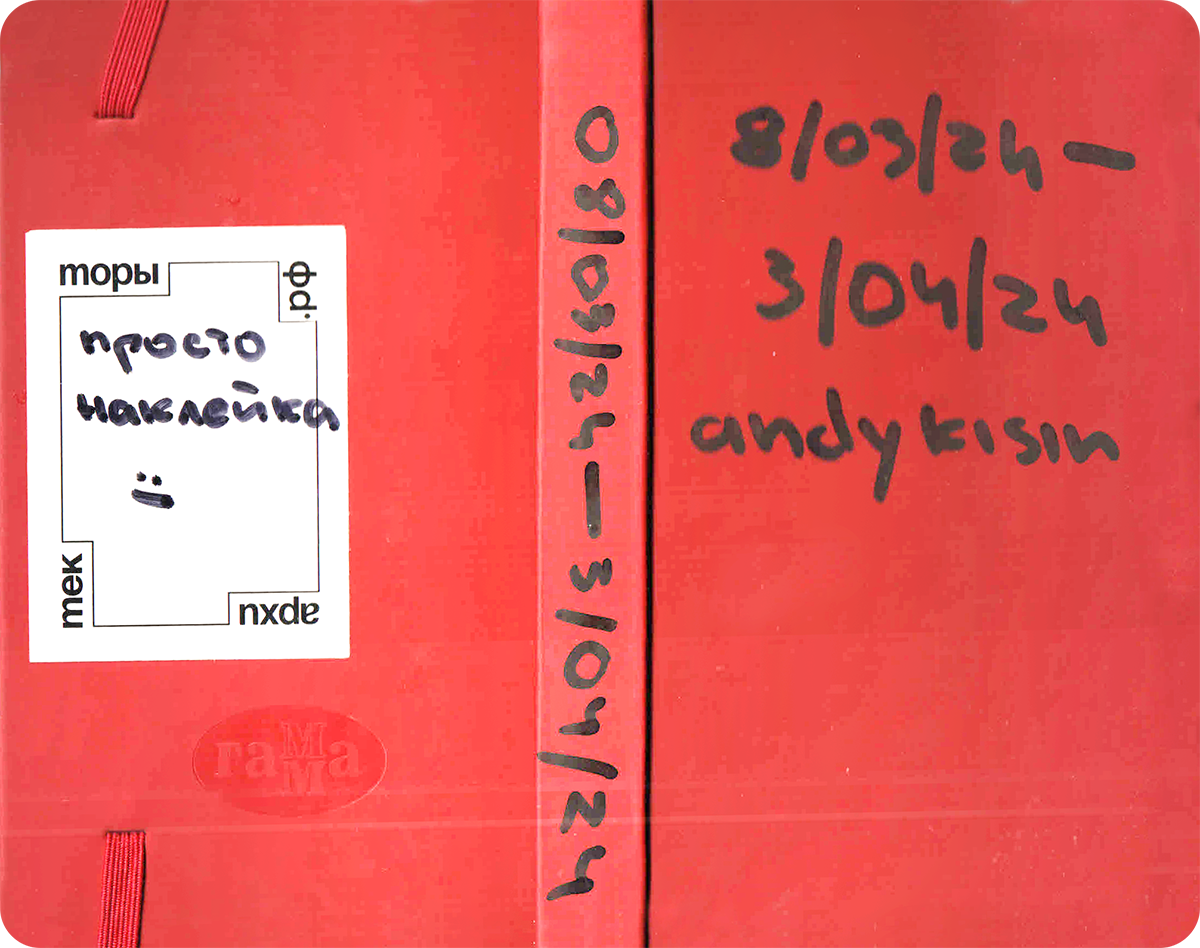 торы
.рф
просто
наклейка
:)
тек
архи
гамма
08/03/24—3/04/24
8/03/24—
3/04/24
andykisin